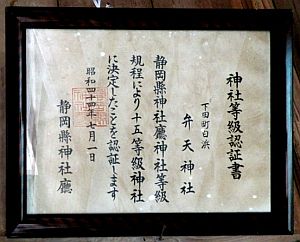 神社等級認証書
下田町白浜
弁天神社
静岡縣神社廳神社等級
規程により十五等級神社
に決定したことを認証します
昭和四十四年七月一日
静岡縣神社廳